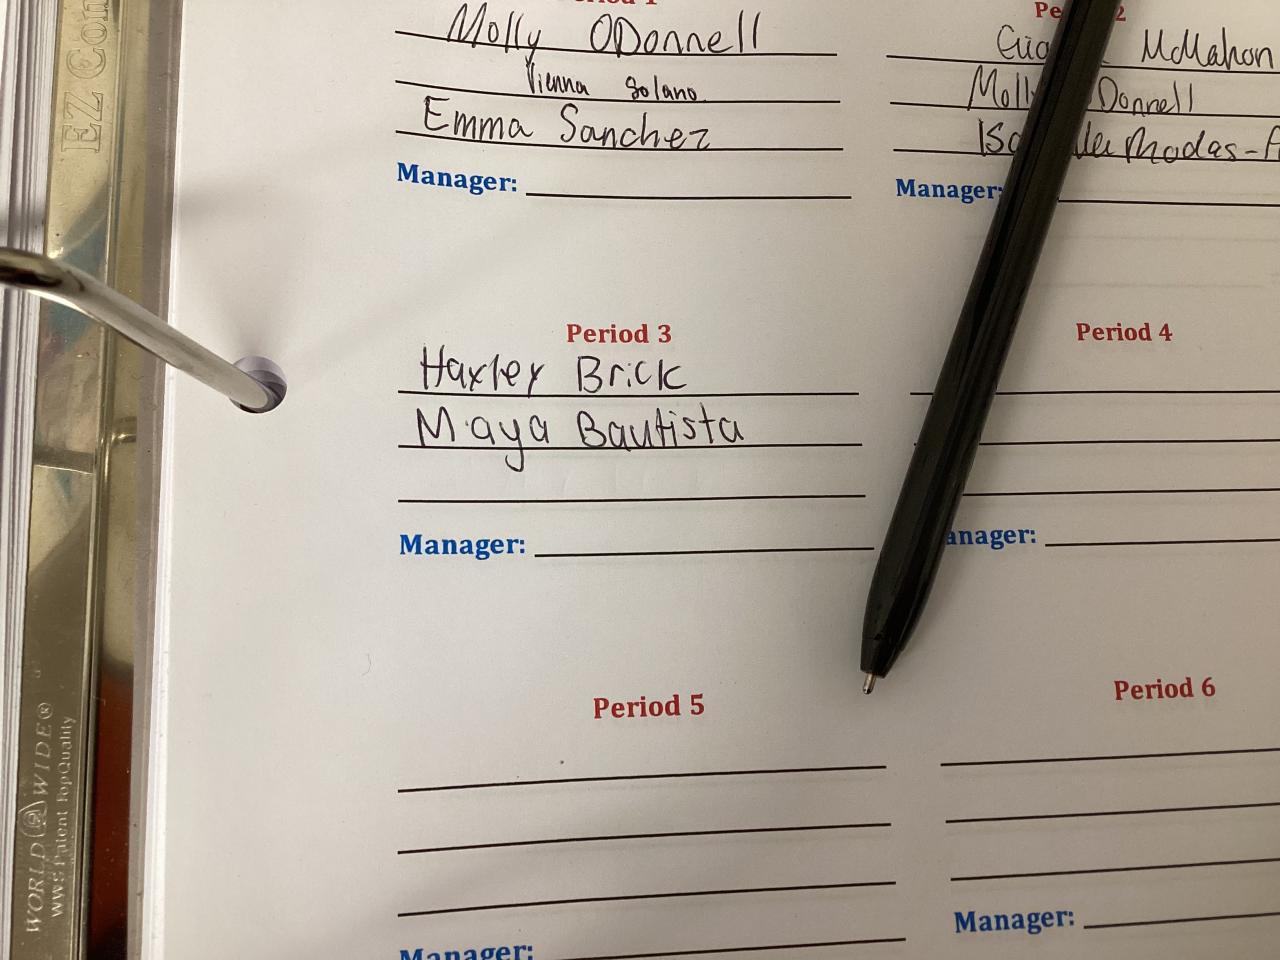 Molly ODonnell
Vienna Solano
Emma Sanchez
Manager:
McMahon
Donnell
Manager:
Period 3
Haxley Brick
Maya Bautista
Manager:
Period 4
Period 5
Manager:
Period 6
Manager:
EZ
WORLD WIDE®
WWS Patent TopQuality